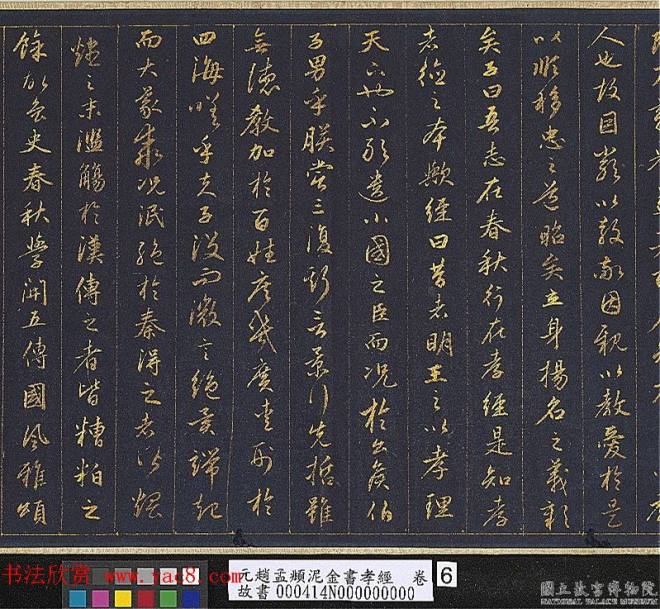 人也故因嚴以教敬因親以教愛於是
以順移忠之道昭矣立身揚名之義彰
矣子曰吾志在春秋行在孝經是知孝
者德之本歟經曰昔者明王之以孝理
天下也不敢遺小國之臣而況於公侯伯
子男乎朕嘗三復斯言景行先哲雖
無德教加於百姓庶幾廣愛刑於
四海嗟乎夫子沒而微言絕異端起
而大義乖況泯絕於秦得之者皆煨
燼之末濫觴於漢傳之者皆糟粕之
餘故魯史春秋學開五傳國風雅頌
书法欣赏
www.yac8.com
元趙孟頫泥金書孝經 卷 6
故書 000414N000000000
國立故宮博物院
NATIONAL PALACE MUSEUM